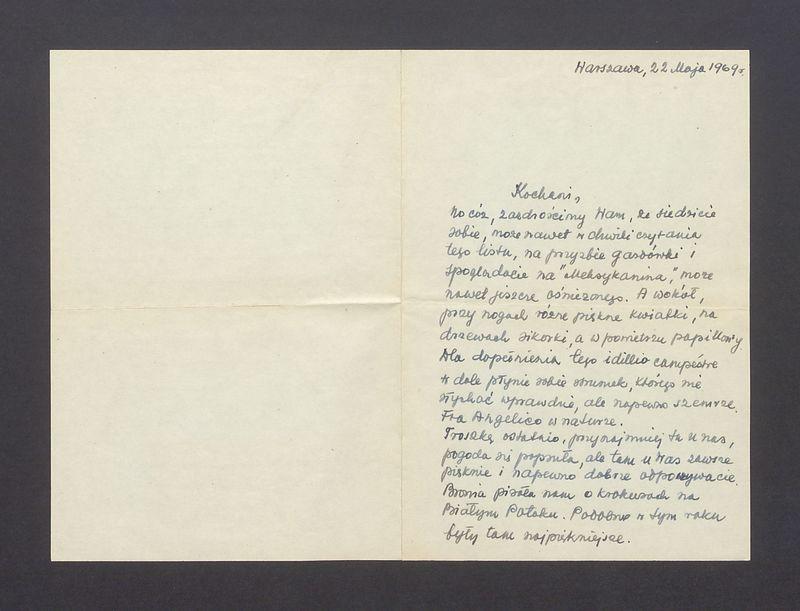 Warszawa, 22 Maja 1969 r.
Kochani,
No cóż, zazdrościmy Wam, że siedzicie
sobie, może nawet w chwili czytania
tego listu, na przyzbie gazdówki i
spoglądacie na "Meksykanina", może
nawet jeszcze ośnieżonego. A wokół,
przy nogach różne piękne kwiatki, na
drzewach sikorki, a w powietrzu papillon'y.
Dla dopełnienia tego idillio campêtre
w dole płynie sobie strumek, którego nie
słychać wprawdzie, ale napewno szemrze.
Fra Angelico w naturze.
Troszkę ostatnio, przynajmniej tu u nas,
pogoda się popsuła, ale tam u Was zawsze
pięknie i napewno dobrze odpoczywacie.
Bronia pisała nam o krokusach na
Białym Potoku. Podobno w tym roku
były tam najpiękniejsze.